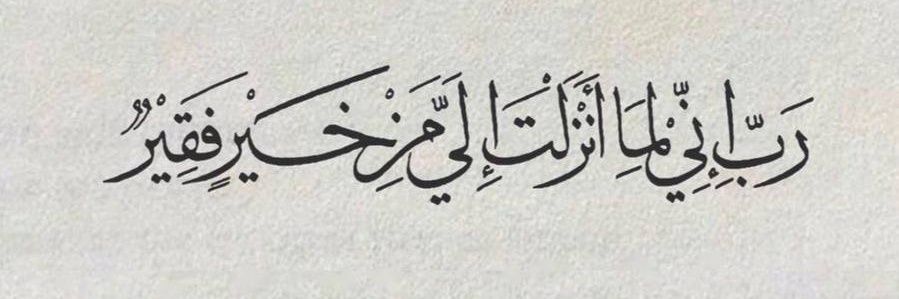 رَبِّ إِنِّي لِمَا أَنْزَلْتَ إِلَيَّ مِنْ خَيْرٍ فَقِيْرٌ